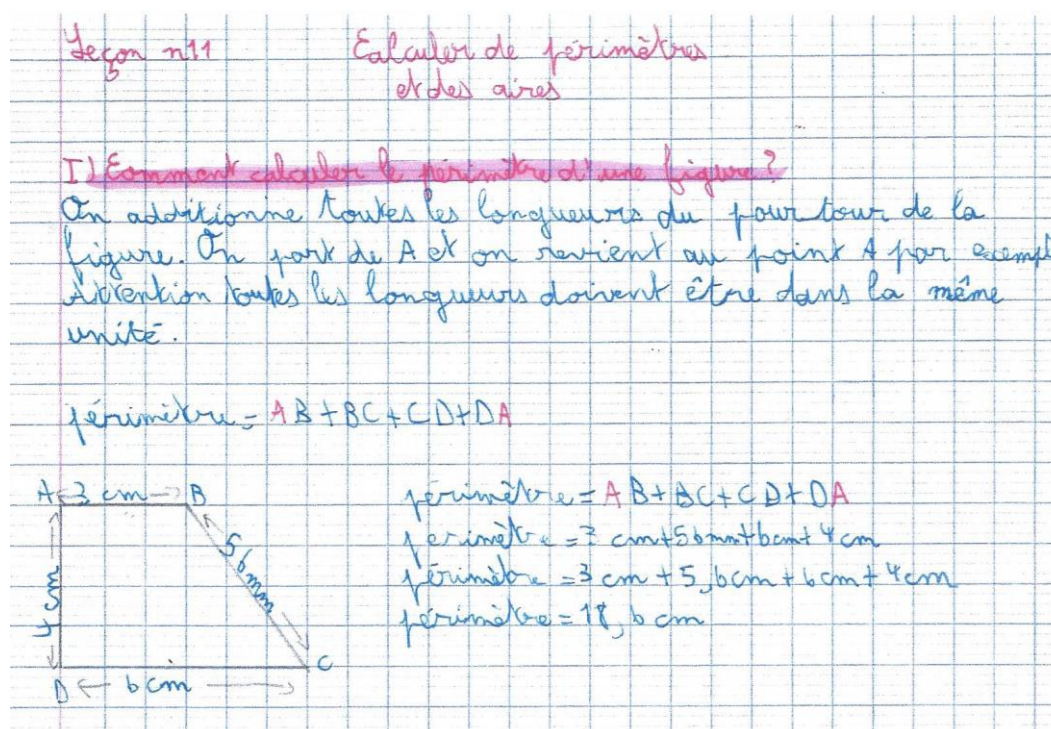 Leçon n11
Calculer de périmètres
et des aires
I) Comment calculer le périmètre d'une figure?
On additionne toutes les longueurs du pourtour de la
figure. On part de A et on revient au point A par exempl
Attention toutes les longueurs doivent être dans la même
unité.
périmètre = AB+BC+CD+DA
A 3 cm B
56mm
4cm
D 6 cm C
périmètre = AB+BC+CD+DA
périmètre = 3 cm+56mm+6cm+4cm
périmètre = 3 cm + 5,6cm + 6cm + 4cm
périmètre = 18,6 cm